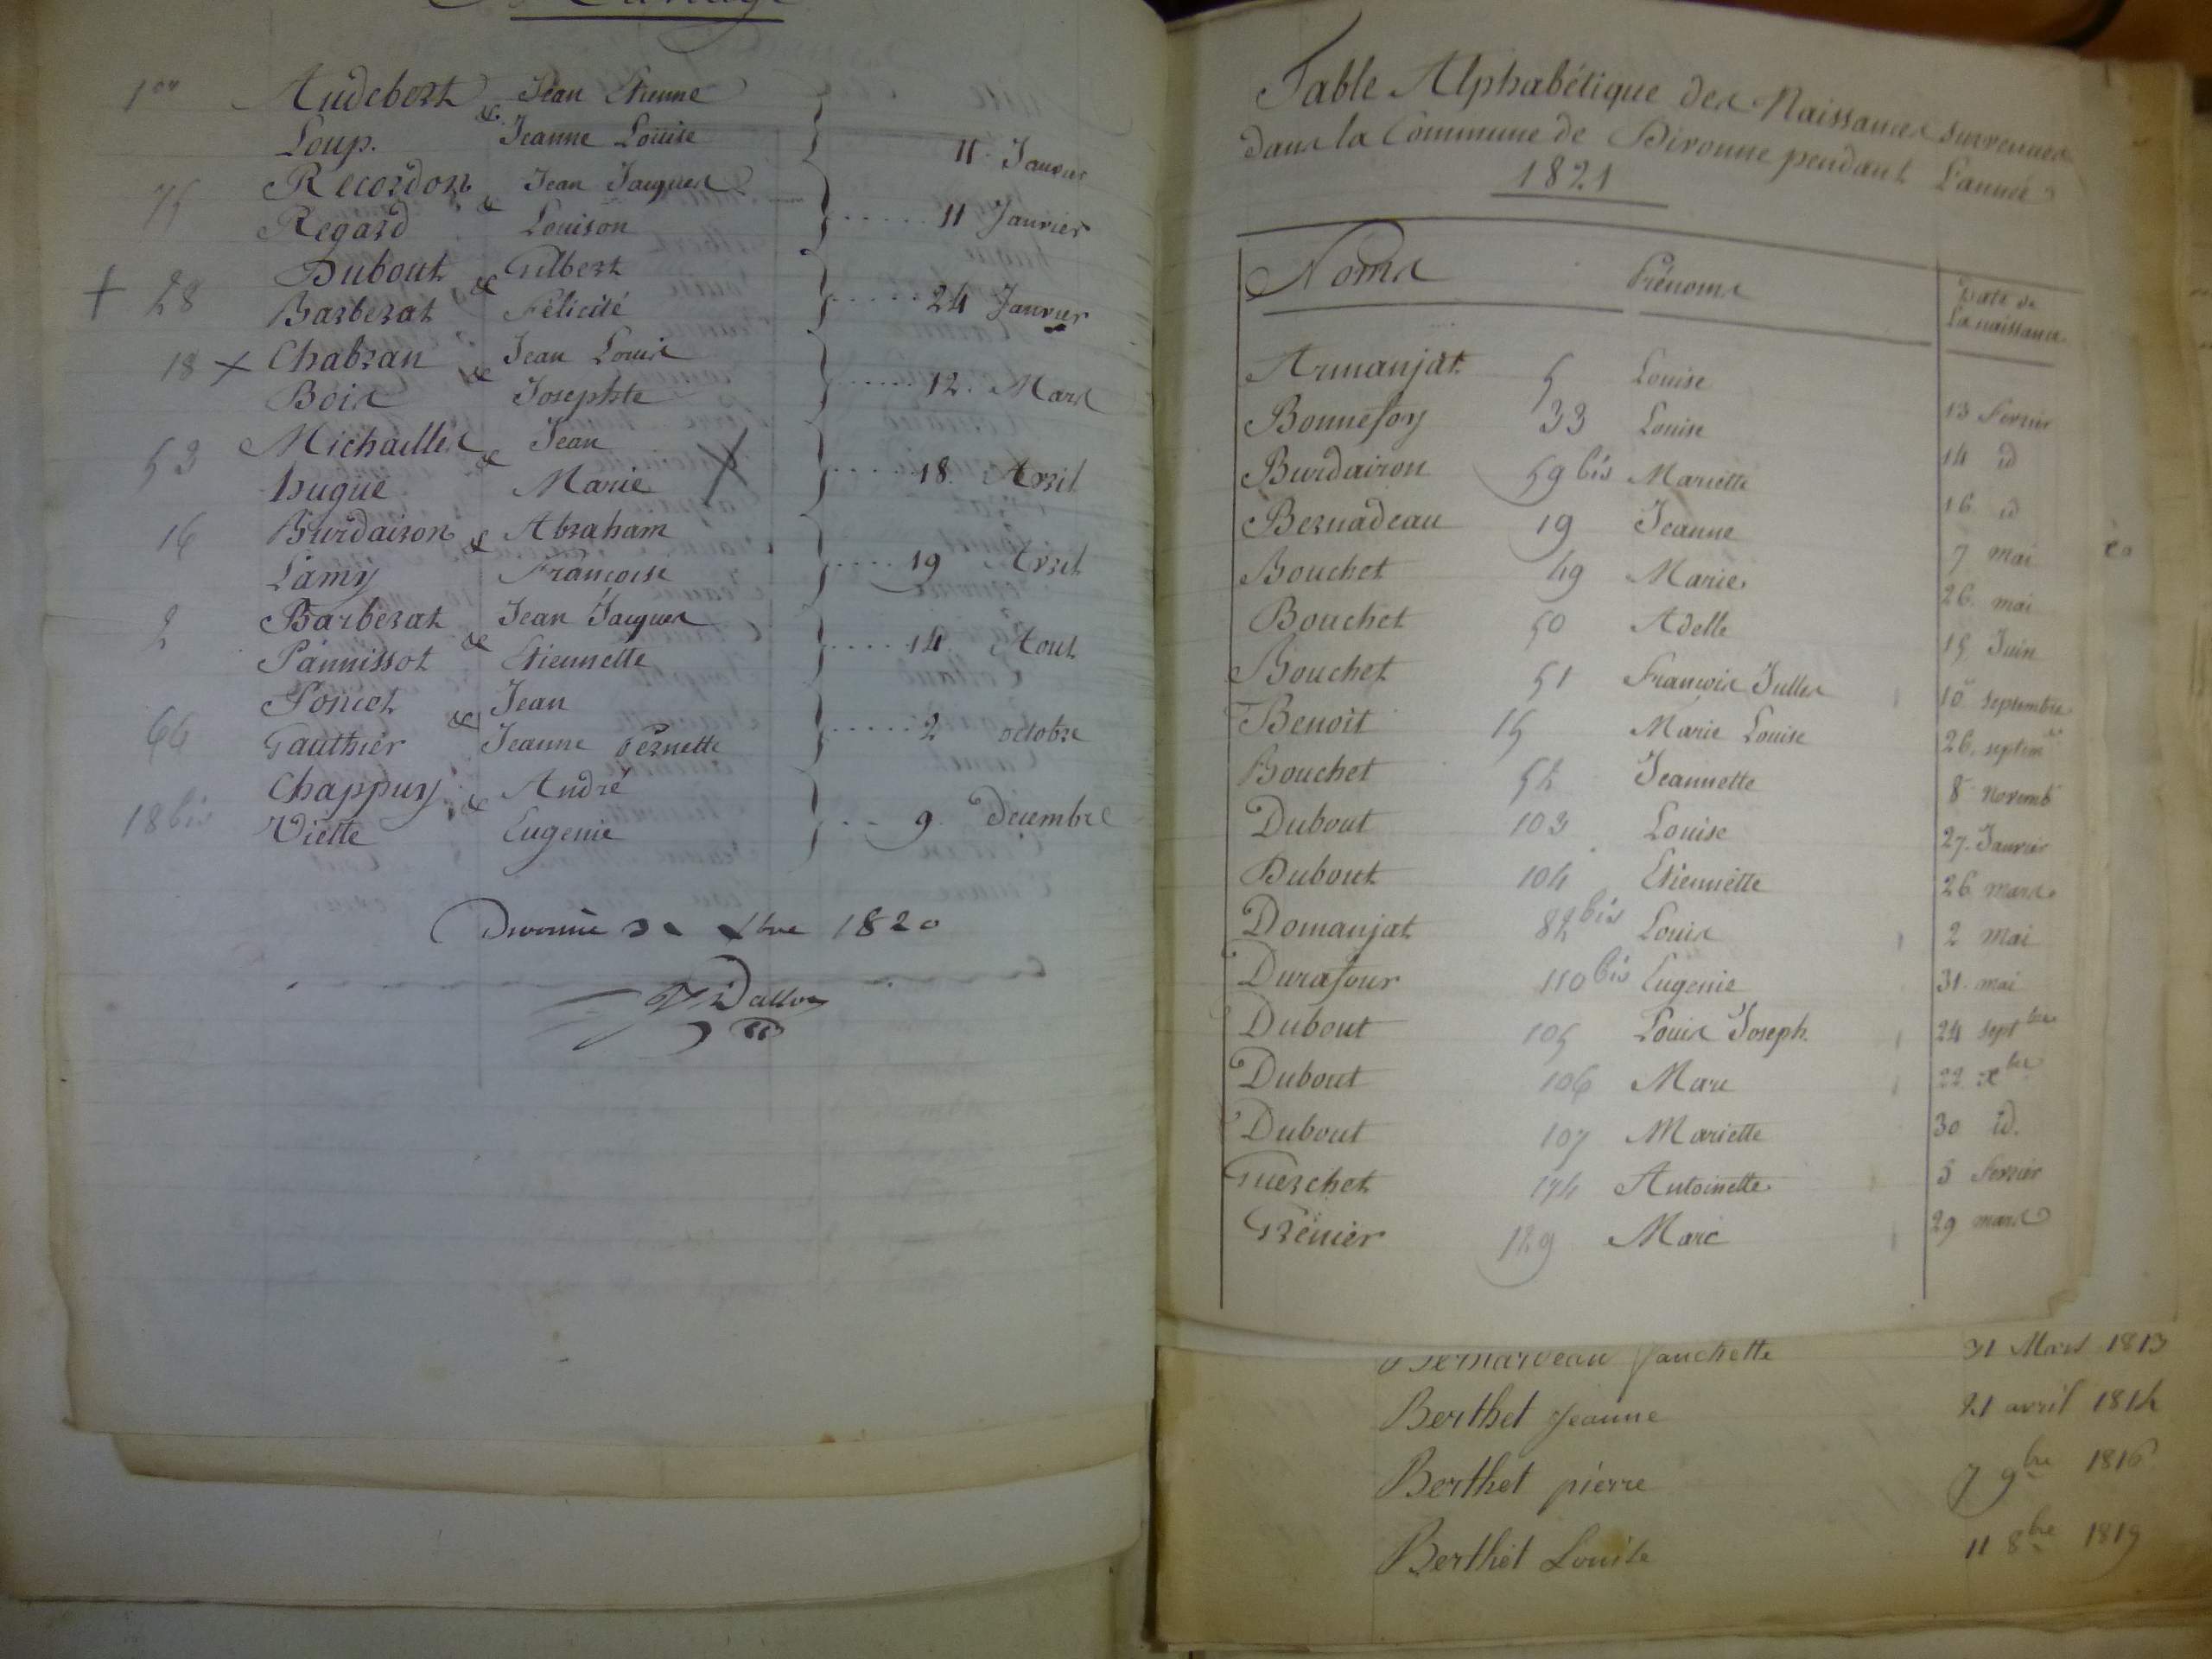 Mariage
1er Audebert & Jean Etienne
Loup. Jeanne Louise 11 Janvier
75 Recordon & Jean Jacques
Regard Louison 11 Janvier
+ 28 Dubout & Gilbert
Barberat Félicité 24 Janvier
18 x Chabran & Jean Louis
Bois Josephte 12. Mars
53 Michailles & Jean
hugue Marie X 18. Avril
16 Burdairon & Abraham
Lamy Francoise 19 Avril
2 Barberat & Jean Jacques
Pannissot Etiennette 14 Aout
Poncet & Jean
66 Gauthier Jeanne Pernette 2 octobre
Chappuy & André
18 bis Viette Eugenie 9 Decembre
Divonne 1820
Table Alphabétique des Naissances survenues
dans la Commune de Divonne pendant L'année
1821
Noms Prénoms Date de
La naissance
Armanjat. 5 Louise 13 Fevrier
Bonnefoy 33 Louise 14 id
Burdairon 59 bis Mariette 16 id
Bernadeau 19 Jeanne 7 mai
Bouchet 49 Marie. 26. mai
Bouchet 50 Adelle 15 Juin
Bouchet 51 Francois Julles 10 septembre
Benoit 15 Marie Louise 26. septembre
Bouchet 52 Jeannette 8 novemb
Dubout 103 Louise 27. Janvier
Dubout 104 Etiennette 26 mars.
Domanjat 82 bis Louis 2 mai
Durafour 110 bis Eugenie 31. mai
Dubout 105 Louis Joseph. 24 septbre
Dubout 106 Marc 22 xbre
Dubout 107 Mariette 30 id.
Guerchet 174 Antoinette 5 Fevrier
Grenier 129 Marc 29 mars
Bernardeau fanchette 31 Mars 1813
Berthet Jeanne 21 avril 1814
Berthet pierre 7 9bre 1816
Berthet Louise 11 8bre 1819